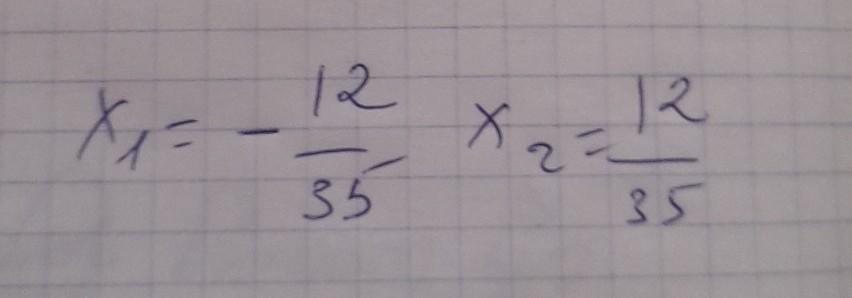 x₁ = - 12/35 x₂ = 12/35